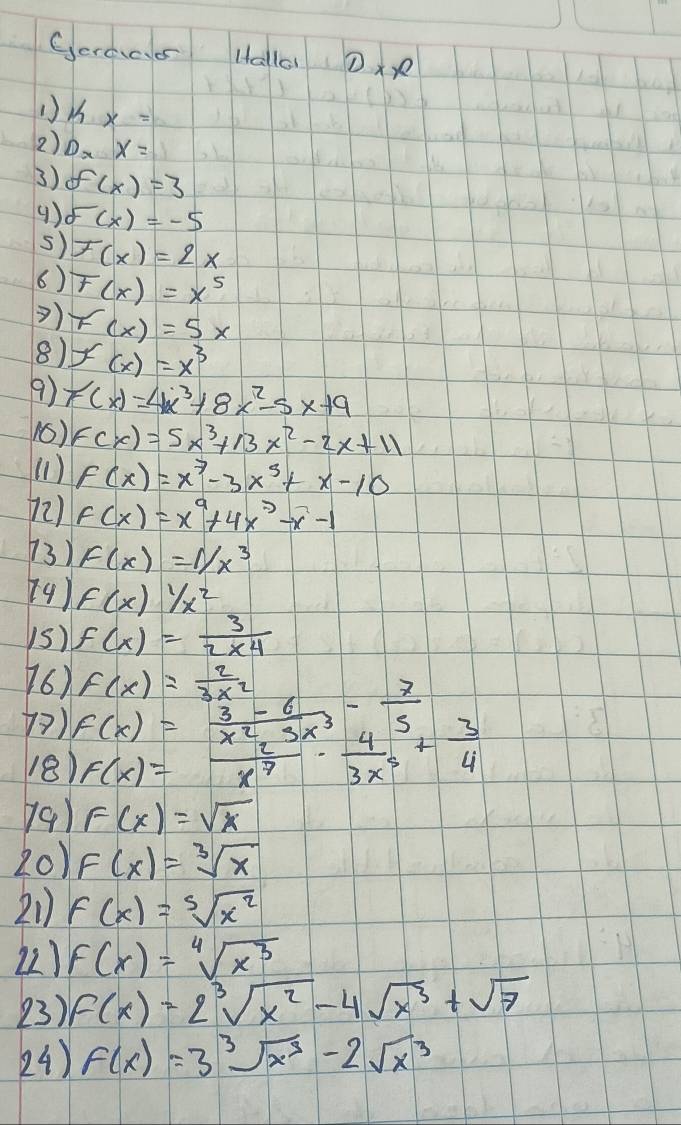 Hallar D x R
1) K x =
2) Dx x =
3) f(x) = 3
4) F(x) = -5
5) F(x) = 2x
6) F(x) = x⁵
7) F(x) = 5x
8) F(x) = x³
9) F(x) = 4x³ + 8x² - 5x + 9
10) F(x) = 5x³ + 13x² - 2x + 11
11) F(x) = x⁷ - 3x⁵ + x - 10
12) F(x) = x⁹ + 4x⁵ - x - 1
13) F(x) = 1/x³
14) F(x) 1/x²
15) F(x) = 3/2x4
16) F(x) = 2/3x²
17) F(x) = 3/x² - 6/5x³ - 7/5
18) F(x) = 2/x⁷ - 4/3x⁵ + 3/4
19) F(x) = √x
20) F(x) = ³√x
21) F(x) = ⁵√x²
22) F(x) = ⁴√x³
23) F(x) = 2 ³√x² - 4√x³ + √7
24) F(x) = 3 ³√x⁵ - 2√x³